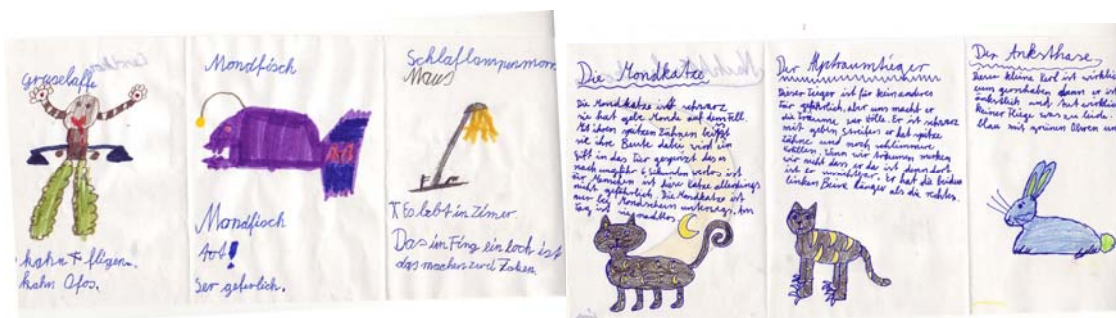 Gruselaffe
kahn fligen.
kahn Ofos.
Mondfisch
Mondfisch
tot!
Ser geferlich.
Schlaflampenmon
Maus
Es lebt in Zimer.
Das im Fing ein loch ist
das machens zwei Zaken.
Die Mondkatze
Die Mondkatze ist schwarz
sie hat gelbe Monde auf dem Fell.
Mit ihren spitzen Zähnen beißt
sie ihre Beute dabei wird ein
gift in das Tier gespritzt das
nach ungefähr 6 Sekunden
für Menschen ist diese Katze allerdings
nicht gefährlich. Die Mondkatze ist
nur bei Mondschein unterwegs. Am
Tag ist sie
Der Alptraumtieger
Dieser Tieger ist für kein anderes
Tier gefährlich, aber uns macht er
die Träume zur Hölle. Er ist schwarz
mit gelben Streifen er hat spitze
Zähne und noch schlimmere
Krallen. Wenn wir träumen merken
wir nicht dass er da ist denn dort
ist er unsichtbar. Er hat die beiden
linken Beine länger als die rechten.
Der Anksthase
Dieser kleine Kerl ist wirklic
zum
änkstlich und tut wirklich
keiner Fliege was zu leide.
blau mit grünen Ohren un